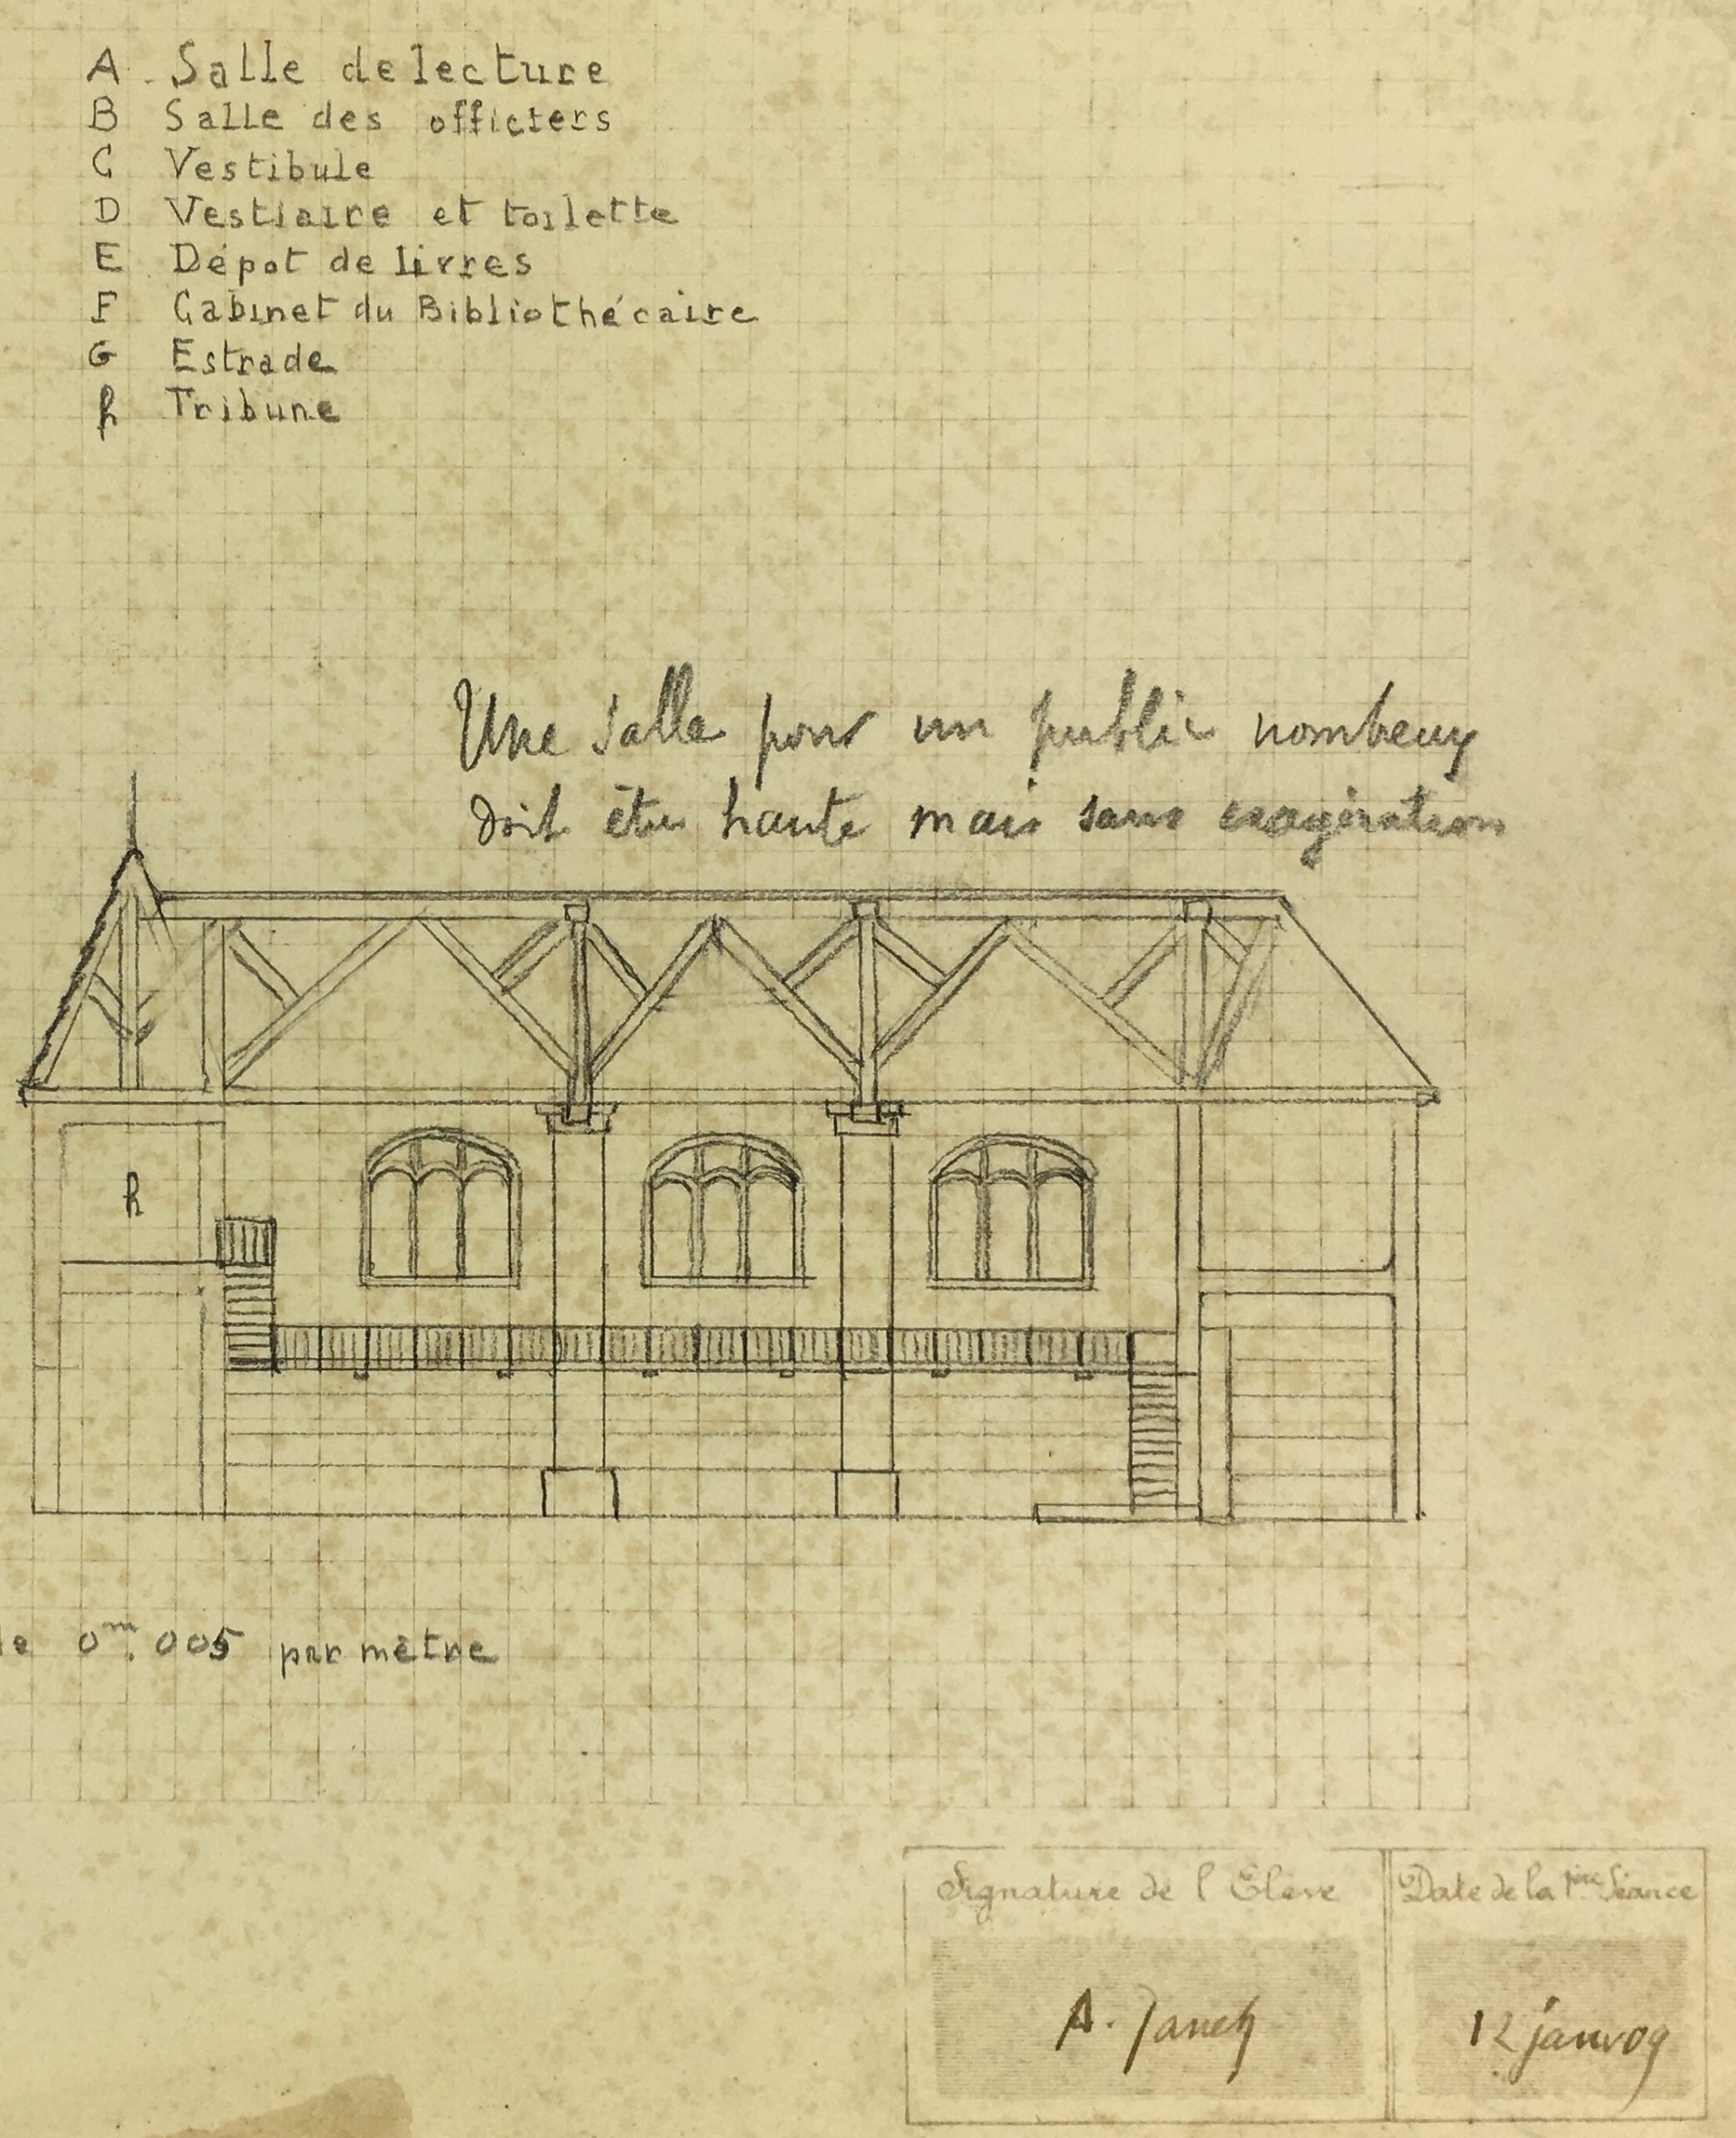 A Salle de lecture
B Salle des officiers
C Vestibule
D Vestiaire et toilette
E Dépot de livres
F Cabinet du Bibliothécaire
G Estrade
h Tribune
Une salle pour un public nombeux
doit être haute mais sans exagération
h
0m.005 par mètre
Signature de l'Elève
Date de la 1ère Séance
A.
12 janv 09